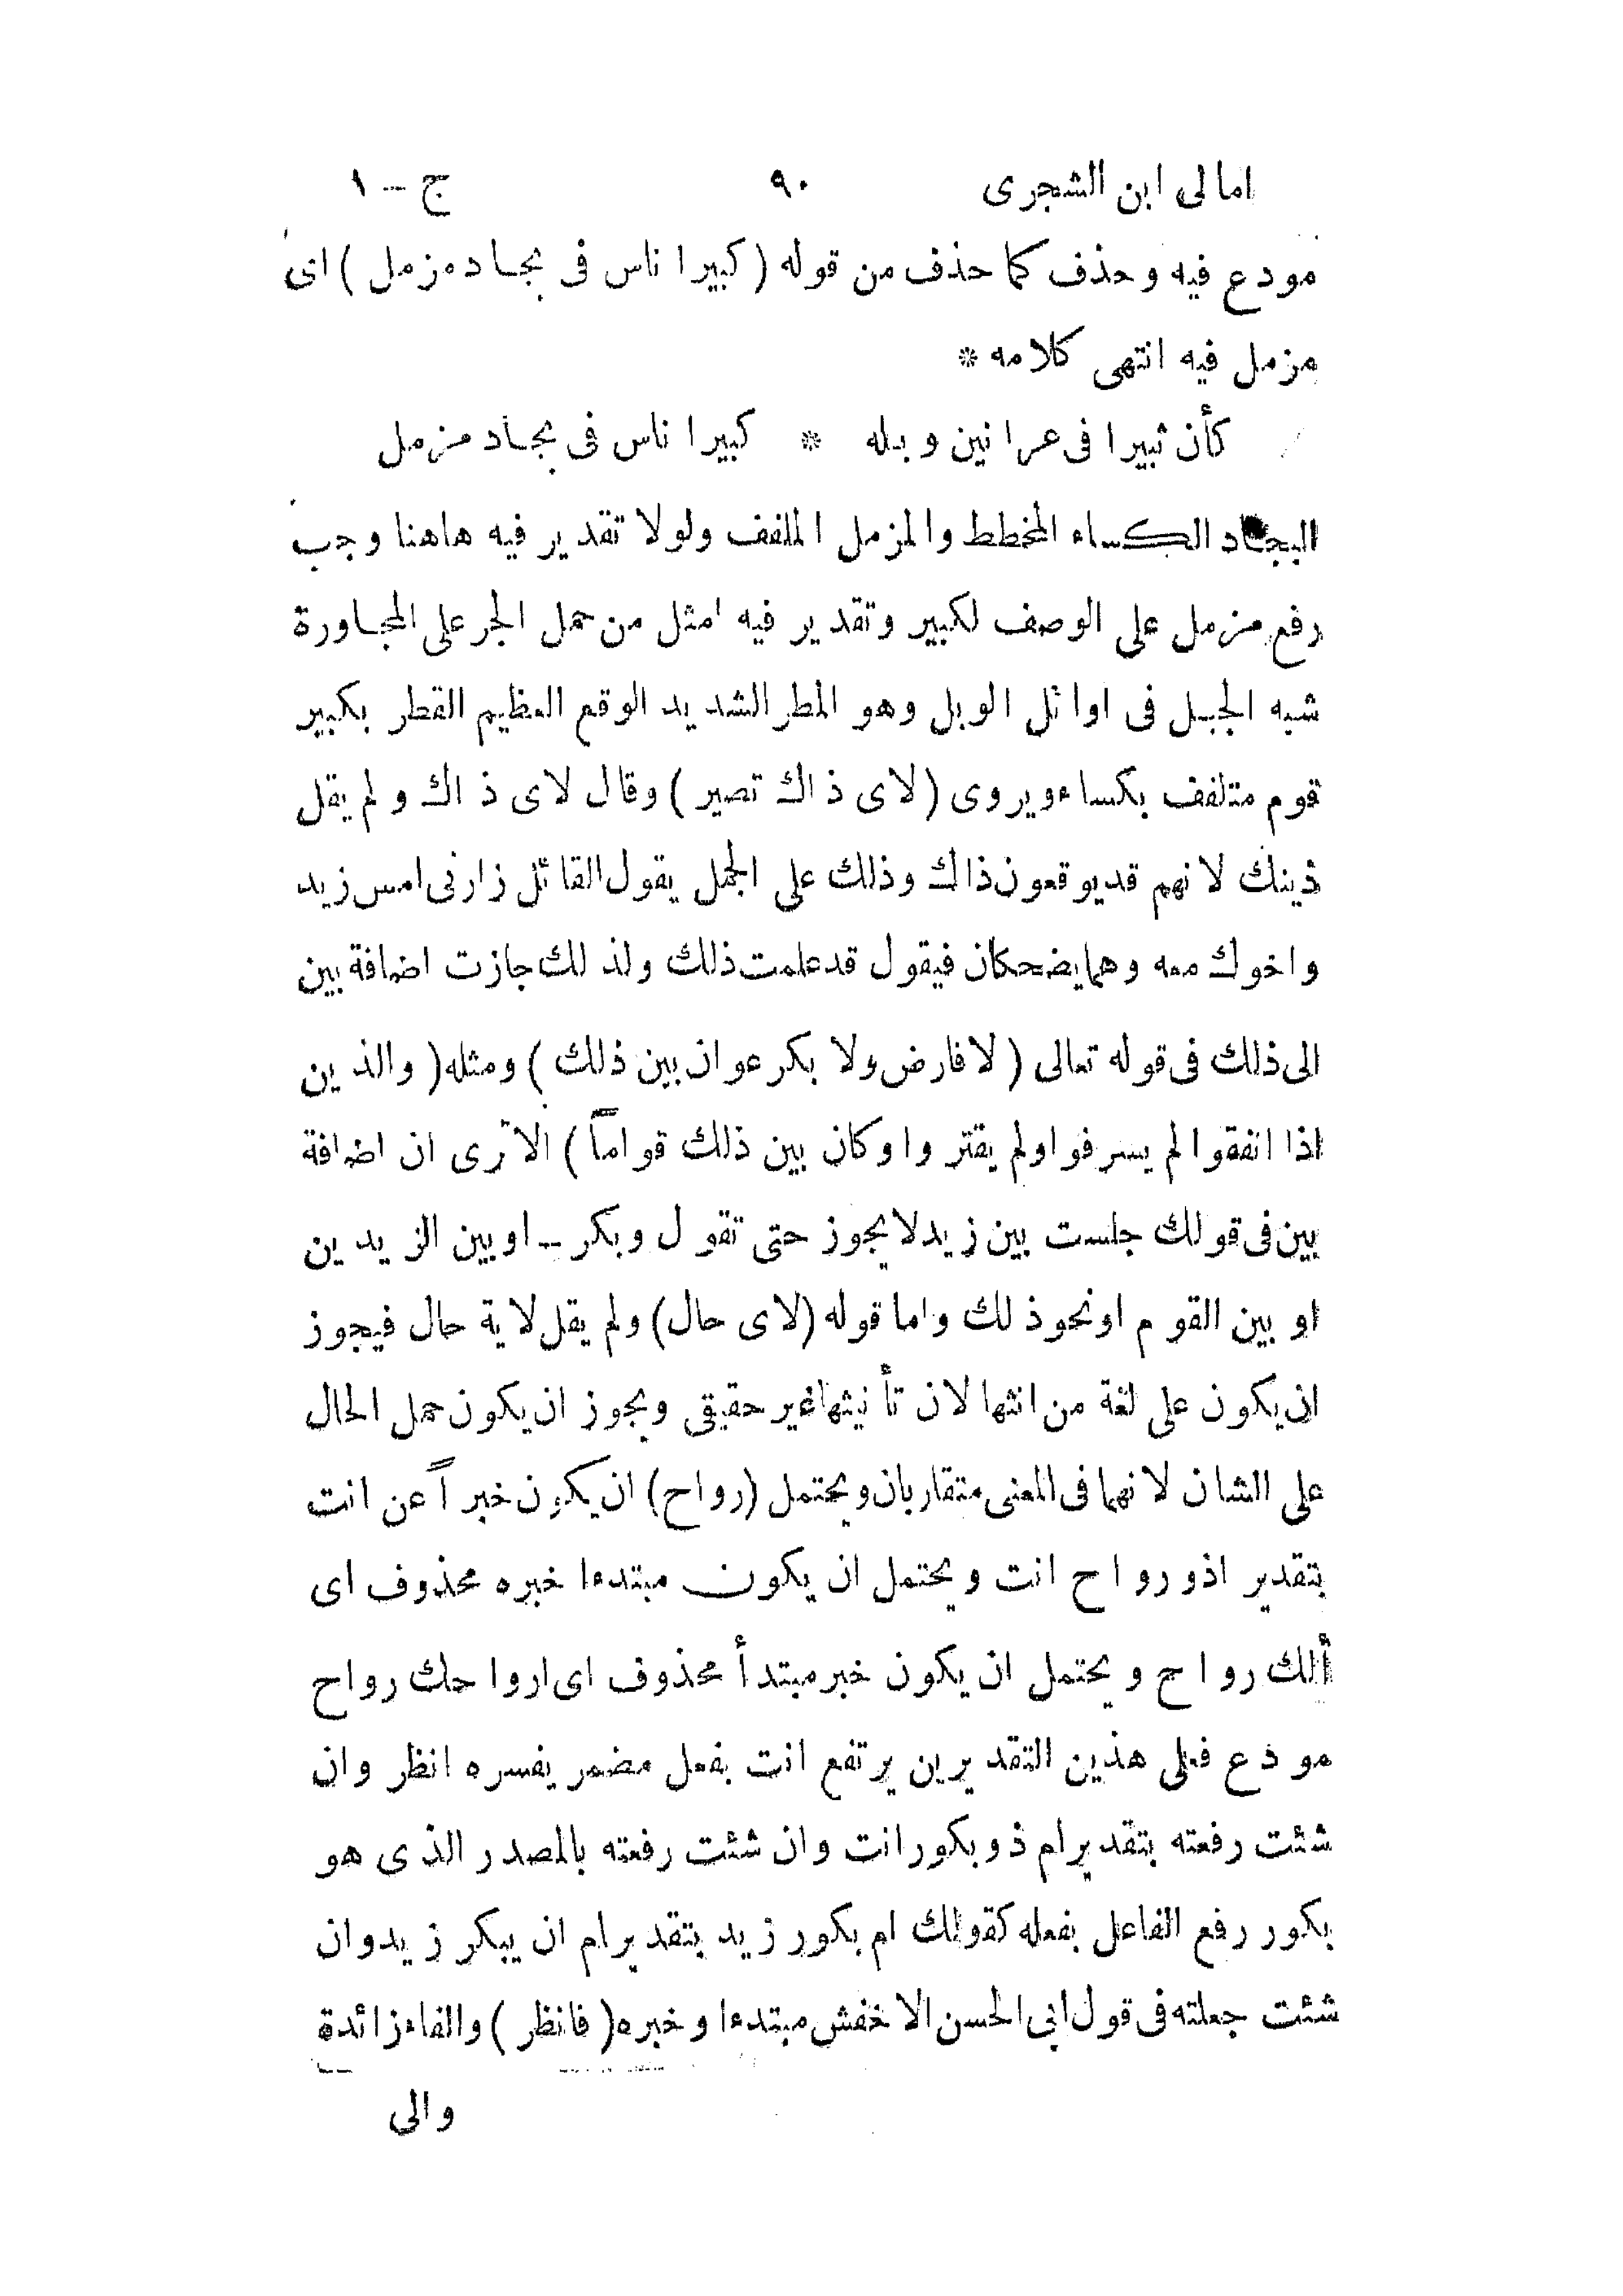 امالى ابن الشجرى ٩٠ ج – ١
مودع فيه وحذف كما حذف من قوله ( كبير اناس فى بجاد مزمل ) اى
مزمل فيه انتهى كلامه *
كأن ثبيرا فى عرانين وبله * كبير اناس فى بجاد مزمل
البجاد الكساء المخطط والمزمل الملفف ولولا تقدير فيه هاهنا وجب
رفع مزمل على الوصف لكبير وتقدير فيه امثل من حمل الجر على المجاورة
شبه الجبل فى اوائل الوبل وهو المطر الشديد الوقع العظيم القطر بكبير
قوم متلفف بكساء ويروى ( لاى ذاك تصير ) وقال لاى ذاك ولم يقل
ذينك لانهم قد يوقعون ذاك وذلك على الجمل يقول القائل زارنى امس زيد
واخوك معه وهما يضحكان فيقول قد علمت ذلك ولذلك جازت اضافة بين
الى ذلك فى قوله تعالى ( لا فارض ولا بكر عوان بين ذلك ) ومثله ( والذين
اذا انفقوا لم يسرفوا ولم يقتروا وكان بين ذلك قواماً ) الا ترى ان اضافة
بين فى قولك جلست بين زيد لا يجوز حتى تقول وبكر – او بين الزيدين
او بين القوم او نحو ذلك واما قوله ( لاى حال ) ولم يقل لاية حال فيجوز
ان يكون على لغة من انثها لان تأنيثها غير حقيقى ويجوز ان يكون حمل الحال
على الشان لانهما فى المعنى متقاربان ويحتمل ( رواح ) ان يكون خبراً عن انت
بتقدير اذو رواح انت ويحتمل ان يكون مبتدءا خبره محذوف اى
ألك رواح ويحتمل ان يكون خبر مبتدأ محذوف اى ارواحك رواح
مودع فعلى هذين التقديرين يرتفع انت بفعل مضمر يفسره انظر وان
شئت رفعته بتقدير ام ذو بكور انت وان شئت رفعته بالمصدر الذى هو
بكور رفع الفاعل بفعله كقولك ام بكور زيد بتقدير ام ان يبكر زيد وان
شئت جعلته فى قول ابى الحسن الاخفش مبتدءا وخبره ( فانظر ) والفاء زائدة
والى